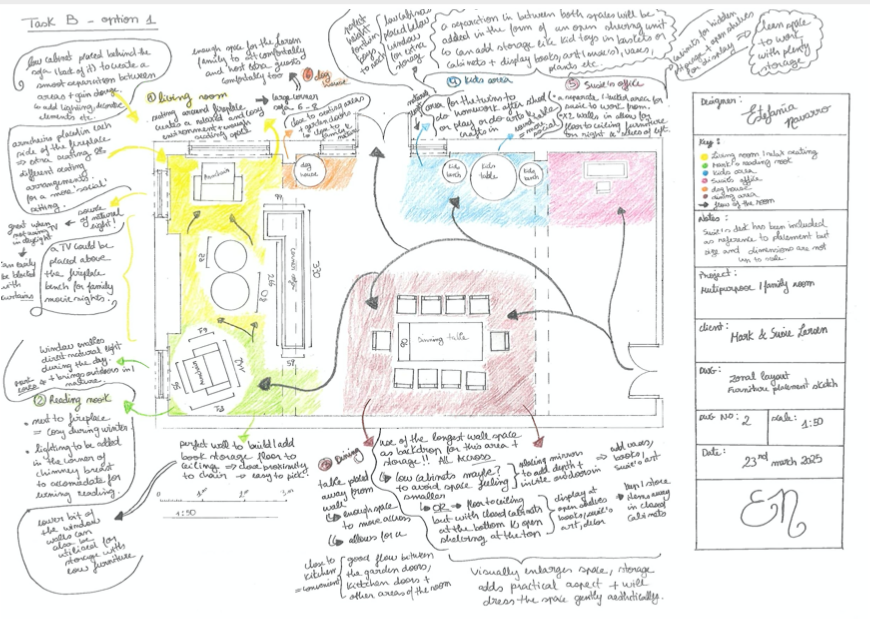 Task B - option 1
low cabinet placed behind the
sofa (back of it) to create a
smart separation between
areas + gain storage.
elements etc.
armchairs placed in each
side of the fireplace
=> other seating &
different seating
arrangements
for a more 'social'
sitting.
source
of natural
light!
great when
not using TV
in daylight
can easily
be blocked
with
curtains
a TV could be
placed above
the fireplace
bench for family
movie nights.
window enables
direct natural light
during the day
+ brings outdoors in /
nature.
② Reading nook
• next to fireplace
= cosy during winter
• lighting to be added
in the corner of
chimney breast
to accomodate for
evening reading.
lower bit of
the window
walls can
also be
utilised for
storage with
low furniture
enough space for the Larsen
family to sit comfortably
and host extra guests
comfortably too
① living room
- seating around fireplace
creates a relaxed and cosy
environment + enough
seating space
=> large corner
sofa 6-8
⑥ dog
house
close to seating areas
+ garden doors
low cabinets
placed below
window
for extra
storage
a separation in between both spaces will be
added in the form of an open shelving unit
to add storage like kid toys in baskets or
cabinets + display books, art (music), vases,
plants etc.
④ kids area
area for the twins to
do homework after school
or play or do arts &
crafts in
⑤ Susie's office
• a separate, tucked area for
Susie to work from.
• x2 walls in allows for
floor to ceiling furniture
on right & of left.
cabinets for hidden
storage + open shelves
for display =>
clean space
to work
with plenty
storage
Armchair
dog
house
kids
bench
kids
table
kids
bench
corner sofa
330
80
Dining table
Armchair
perfect wall to build / add
book storage floor to
ceiling => close proximity
to chair => easy to pick!
1:50
③ Dining
table placed
away from
wall
↳ enough space
to move across
↳ allows for a
close to
kitchen
= convenient
good flow between
the garden doors,
kitchen doors +
other areas of the room
use of the longest wall space
as backdrop for this area +
storage!! All Across
↳ low cabinets maybe?
to avoid space feeling
smaller
placing mirrors
to add depth +
invite outdoors in
=> add vases,
books,
Susie's art
↳ OR → floor to ceiling
but with closed cabinets
at the bottom & open
shelving at the top
display at
open shelves
books, Susie's
art, decor
keep / store
away
in closed
cabinets
Visually enlarges space, storage
adds practical aspect + will
dress the space gently aesthetically.
Designer:
Estefania
Navarro
Key:
Living room / main seating
Mark's reading nook
Kids area
Susie's office
dog house
dining area
flow of the room
Notes:
Susie's desk has been included
as reference to placement but
size and dimensions are not
up to scale.
Project:
Multipurpose / family room
client:
Mark & Susie Larsen
DWG:
Zonal layout
Furniture placement sketch
DWG NO: 2
scale: 1:50
Date:
23rd march 2025
EN